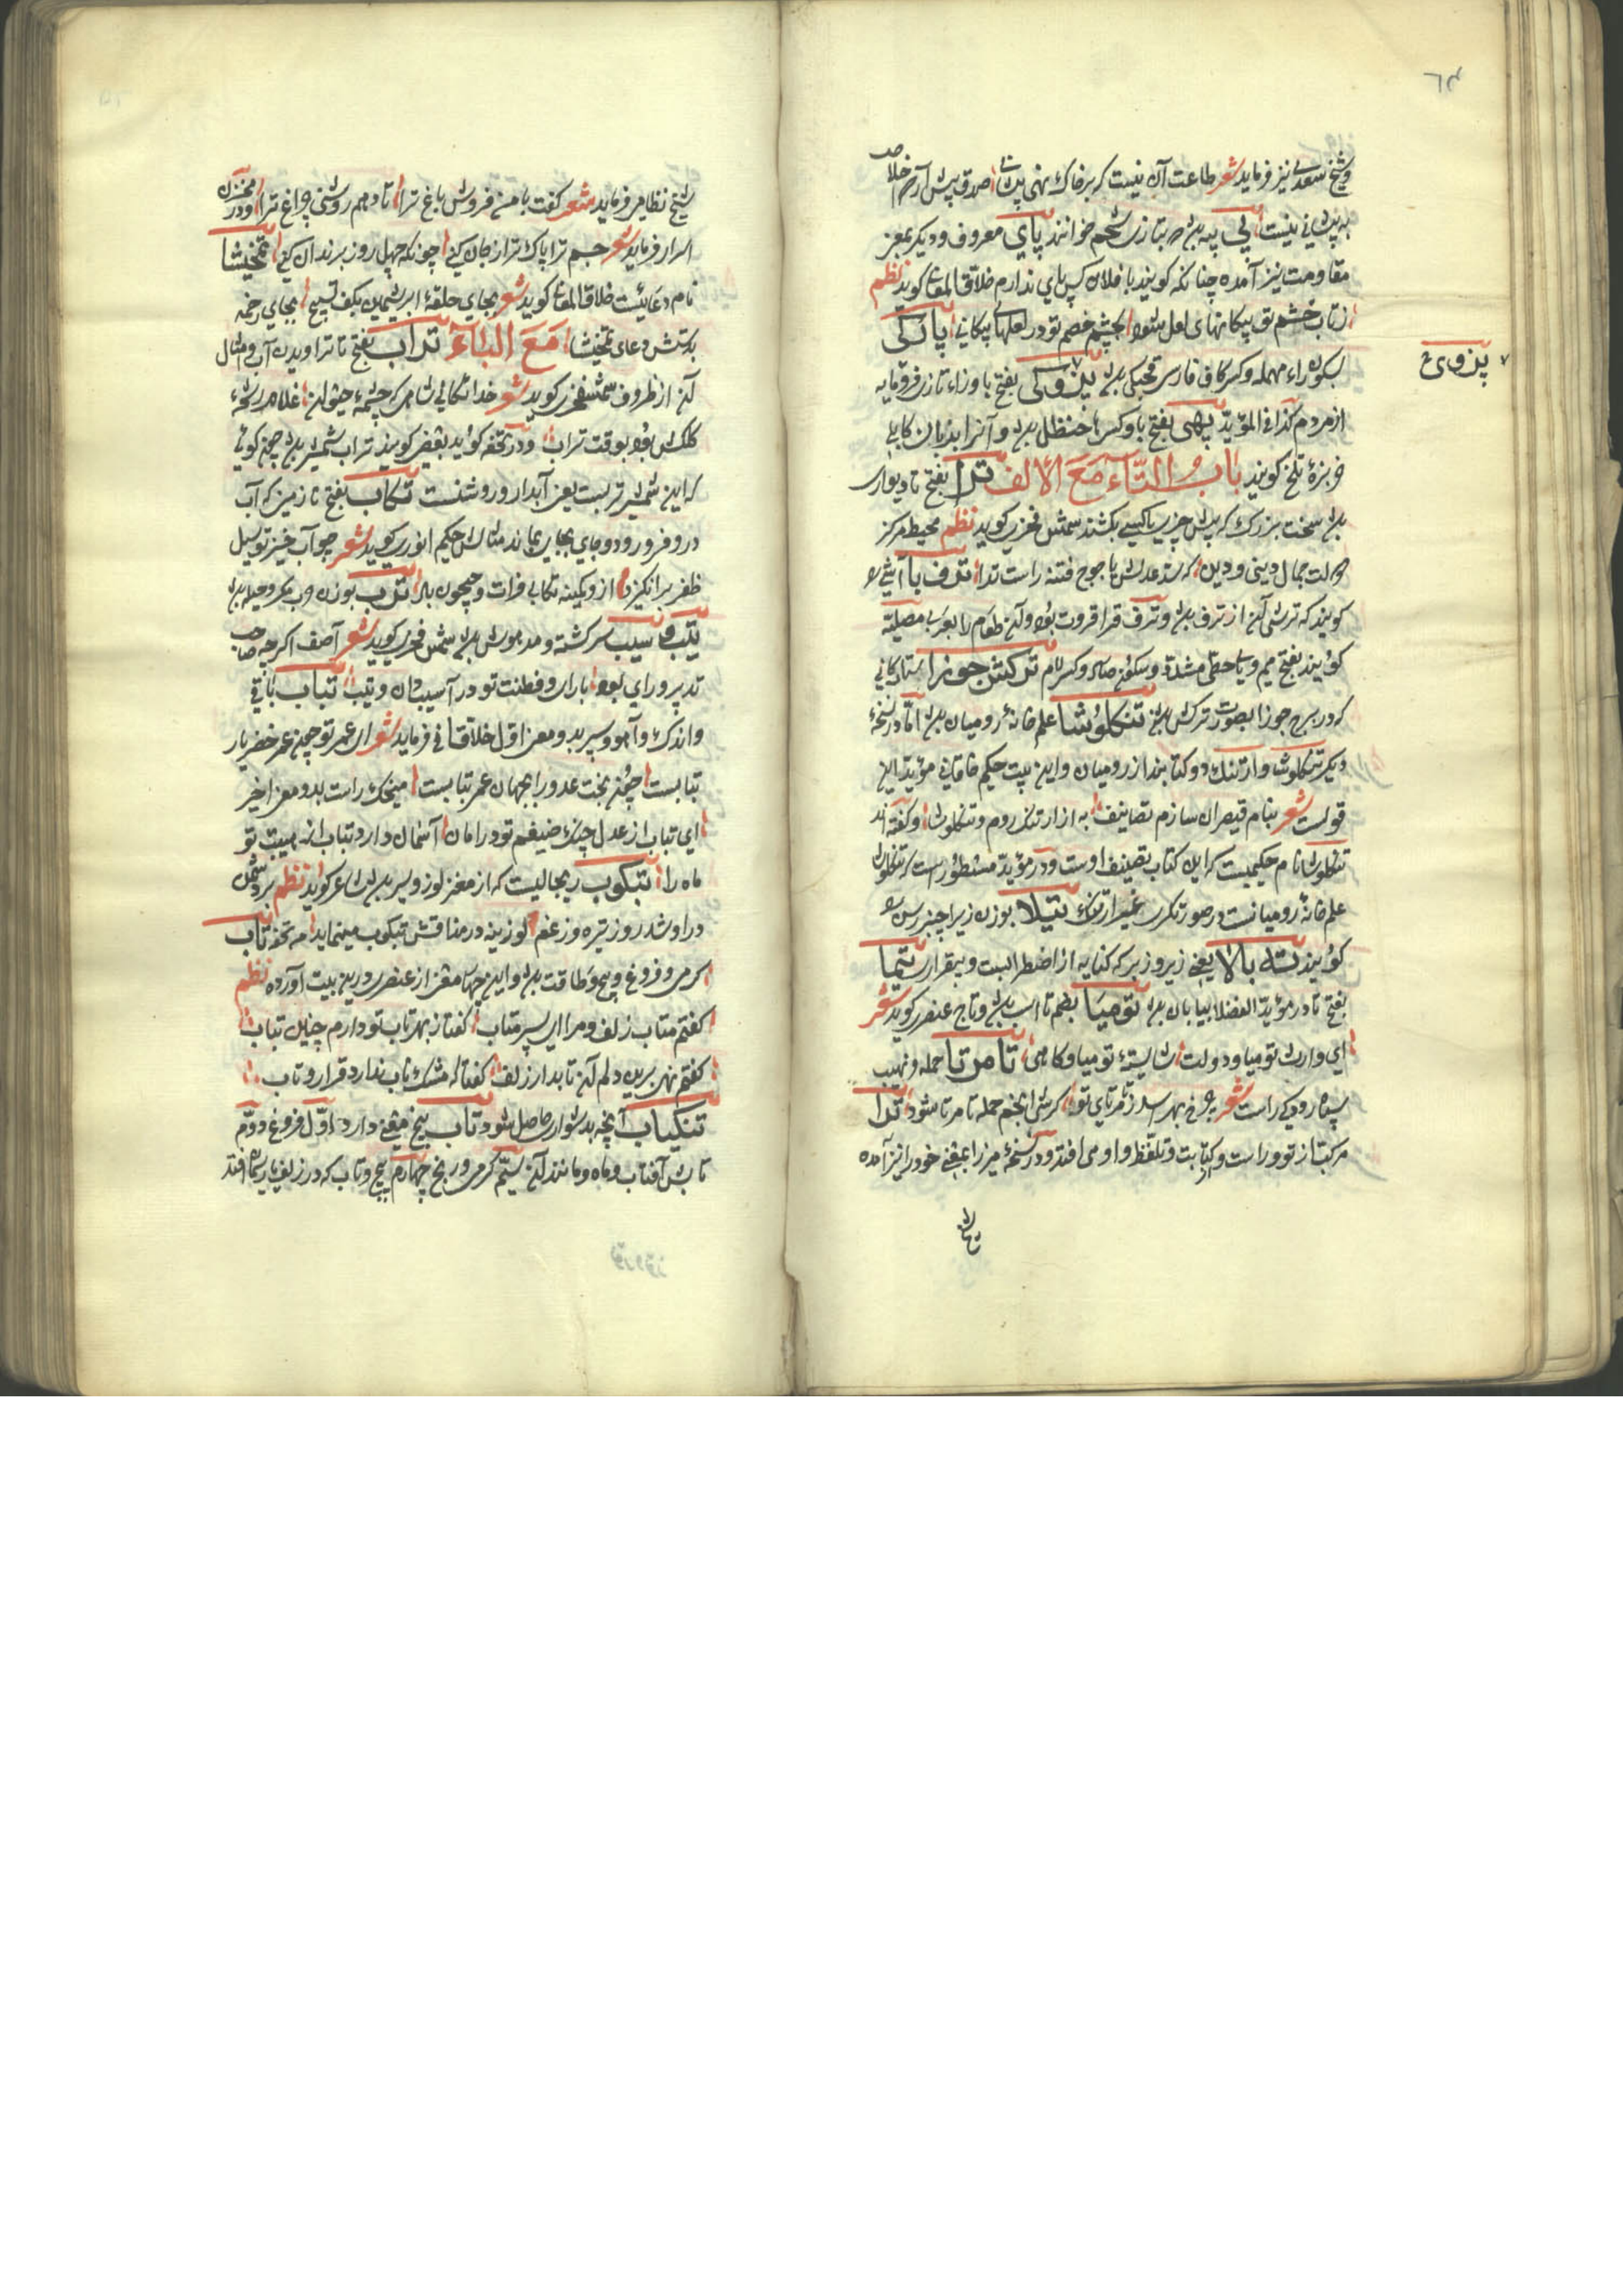 ٦٤
و شیخ سعدی نیز فرماید شعر طاعت آن نیست که بر خاک نهی پیشانی صدق پیش آر که اخلاص
به پیشانی نیست پی پیه بدن که بتازی شحم خوانند پای معروف و دیگر بمعنی
مقاومت نیز آمده چنانکه کویند با فلان کس پای ندارم خلاق المعانی کوید نظم
زتاب خشم تو پیکانهای لعل شود بچشم خصم تو در لعلهای پیکانی پارکی
بسکون راء مهمله و کسر کاف فارسی قحبکی بدن پژوکی بفتح با و زاء تازی فرومایه
پژوی
از مردم کذا فی المؤید پهی بفتح با و کسر ها حنظل بدن و آنرا بزبان کابلی
خربزهٔ تلخ کویند باب التاء مع الالف ترا بفتح تا دیواری
بدن سخت بزرک که پیش چیزی یا کسی بکشند شمس فخری کوید نظم محیط مرکز
دولت جمال دینی و دین که سد عدلش یاجوج فتنه راست ترا ترف با آشی
کویند که ترشی آن از ترف بدن و ترف قراقروت بود و آن طعام را بعربی مصلیه
کویند بفتح میم و یای حطی مشدد و سکون صاد و کسر لام ترکش جوزا ستارگانی
که در برج جوزا بصورت ترکش بدن تنکلوشا علم خانهٔ رومیان بدن اما در نسخهٔ
دیکر تنکلوش و ارتنک دو کتابند از رومیان و این بیت حکیم خاقانی مؤید این
قولست شعر بنام قیصران سازم تصانیف به از ارتنک روم و تنکلوشا و کفته اند
تنکلوشا نام حکیمیست که این کتاب تصنیف اوست و در مؤید مسطورست که تنکلوش
علم خانهٔ رومیانست در صورتکری غیر ارتنک تیلا بوزن زیرا چیزرس
کویند تله بالا یعنی زیر و زبر که کنایه از اضطرابست و بیقراری تیما
بفتح تا در مؤید الفضلا بیابان بدن تومیا بضم تا اسب بدن و تاج عنصری کوید شعر
ای وارث تومیا و دولت شایستهٔ تومیا و کاهی تا مرتا حمله و نهیب
سپاه رودکی راست شعر چرخ بهراسد ز تمرتای تو کرش انجم جمله تا مرتا شود ترا
مرکبتاز تو و راست و کتابت و تلفظ واو می افتد و در نسخهٔ میرزا بمعنی خود را نیز آمده
شیخ نظامی فرماید شعر کفت با من فروش باغ ترا تا دهم روشنی چراغ ترا و در مخزن
اسرار فرماید شعر جسم ترا پاک تر از جان کنی چونکه چهل روز بزندان کنی تمخیشا
نام دعائیست خلاق المعانی کوید شعر بجای حلقهٔ ابریشمین بکف تسبیح بجای زخمه
بدستش دعای تمخیشا مع الباء تراب بفتح تا تراویدن آب و مثال
آن از ظروف شمس فخری کوید شعر خدایکانی شاهی که چشمهٔ حیوان غلام رشحهٔ
کلکش بود بوقت تراب و در تحفه کوید بعضی کویند تراب شمشیر بدن چنین کوئی
که این شمشیر تربست یعنی آبدار و روشنست تکاب بفتح تا زمین که آب
درو فرو رود و جای بجای بماند مثالش حکیم انوری کوید شعر چو آب خیز تو سیل
ظفر برانکیزد از و کمینه تکابی فرات و جیحون باد ترب بوزن چرب مکر و حیله بدن
تیب و سیب سرکشته و مدهوش بدن شمس فخری کوید شعر آصف اکرچه صاحب
تدبیر و رای بود باران و فطنت تو در آسیب و ان و تیب تباب باقی
و اندک و آهو و سپر بد و معنی اول خلاق المعانی فرماید شعر ای عمر تو چون عمر خضر یار
تبابست چون بخت عدو را بجهان عمر تبابست منجیک راست بدو معنی اخیر
ای تباب از عدل چنک ضیغم تو در امان آسمان دارد تباب از هیبت تو
ماه را تبکوب ریچالیست که از مغز لوز و سیر بدن شاعر کوید نظم بر دشمن
در او شد روز تیره وز غم لوزینه در مذاقش تبکوب مینماید مه تحفه تاب
کرمی و فروغ و پیچ و طاقت بدن و این چهار معنی از عنصری درین بیت آورده نظم
کفتم متاب زلف و مرا ای پسر متاب کفتا ز بهر تاب تو دارم چنین تباب
کفتم نهی برین دلم آن تابدار زلف کفتا که مشک ناب ندارد قرار و تاب
تنکیاب آنچه بدشواری حاصل شود تاب پنج معنی دارد اول فروغ دوم
تابش آفتاب و ماه و مانند آن سیم کرمی و رنج چهارم پیچ و تاب که در زلف یا ریسمان افتد